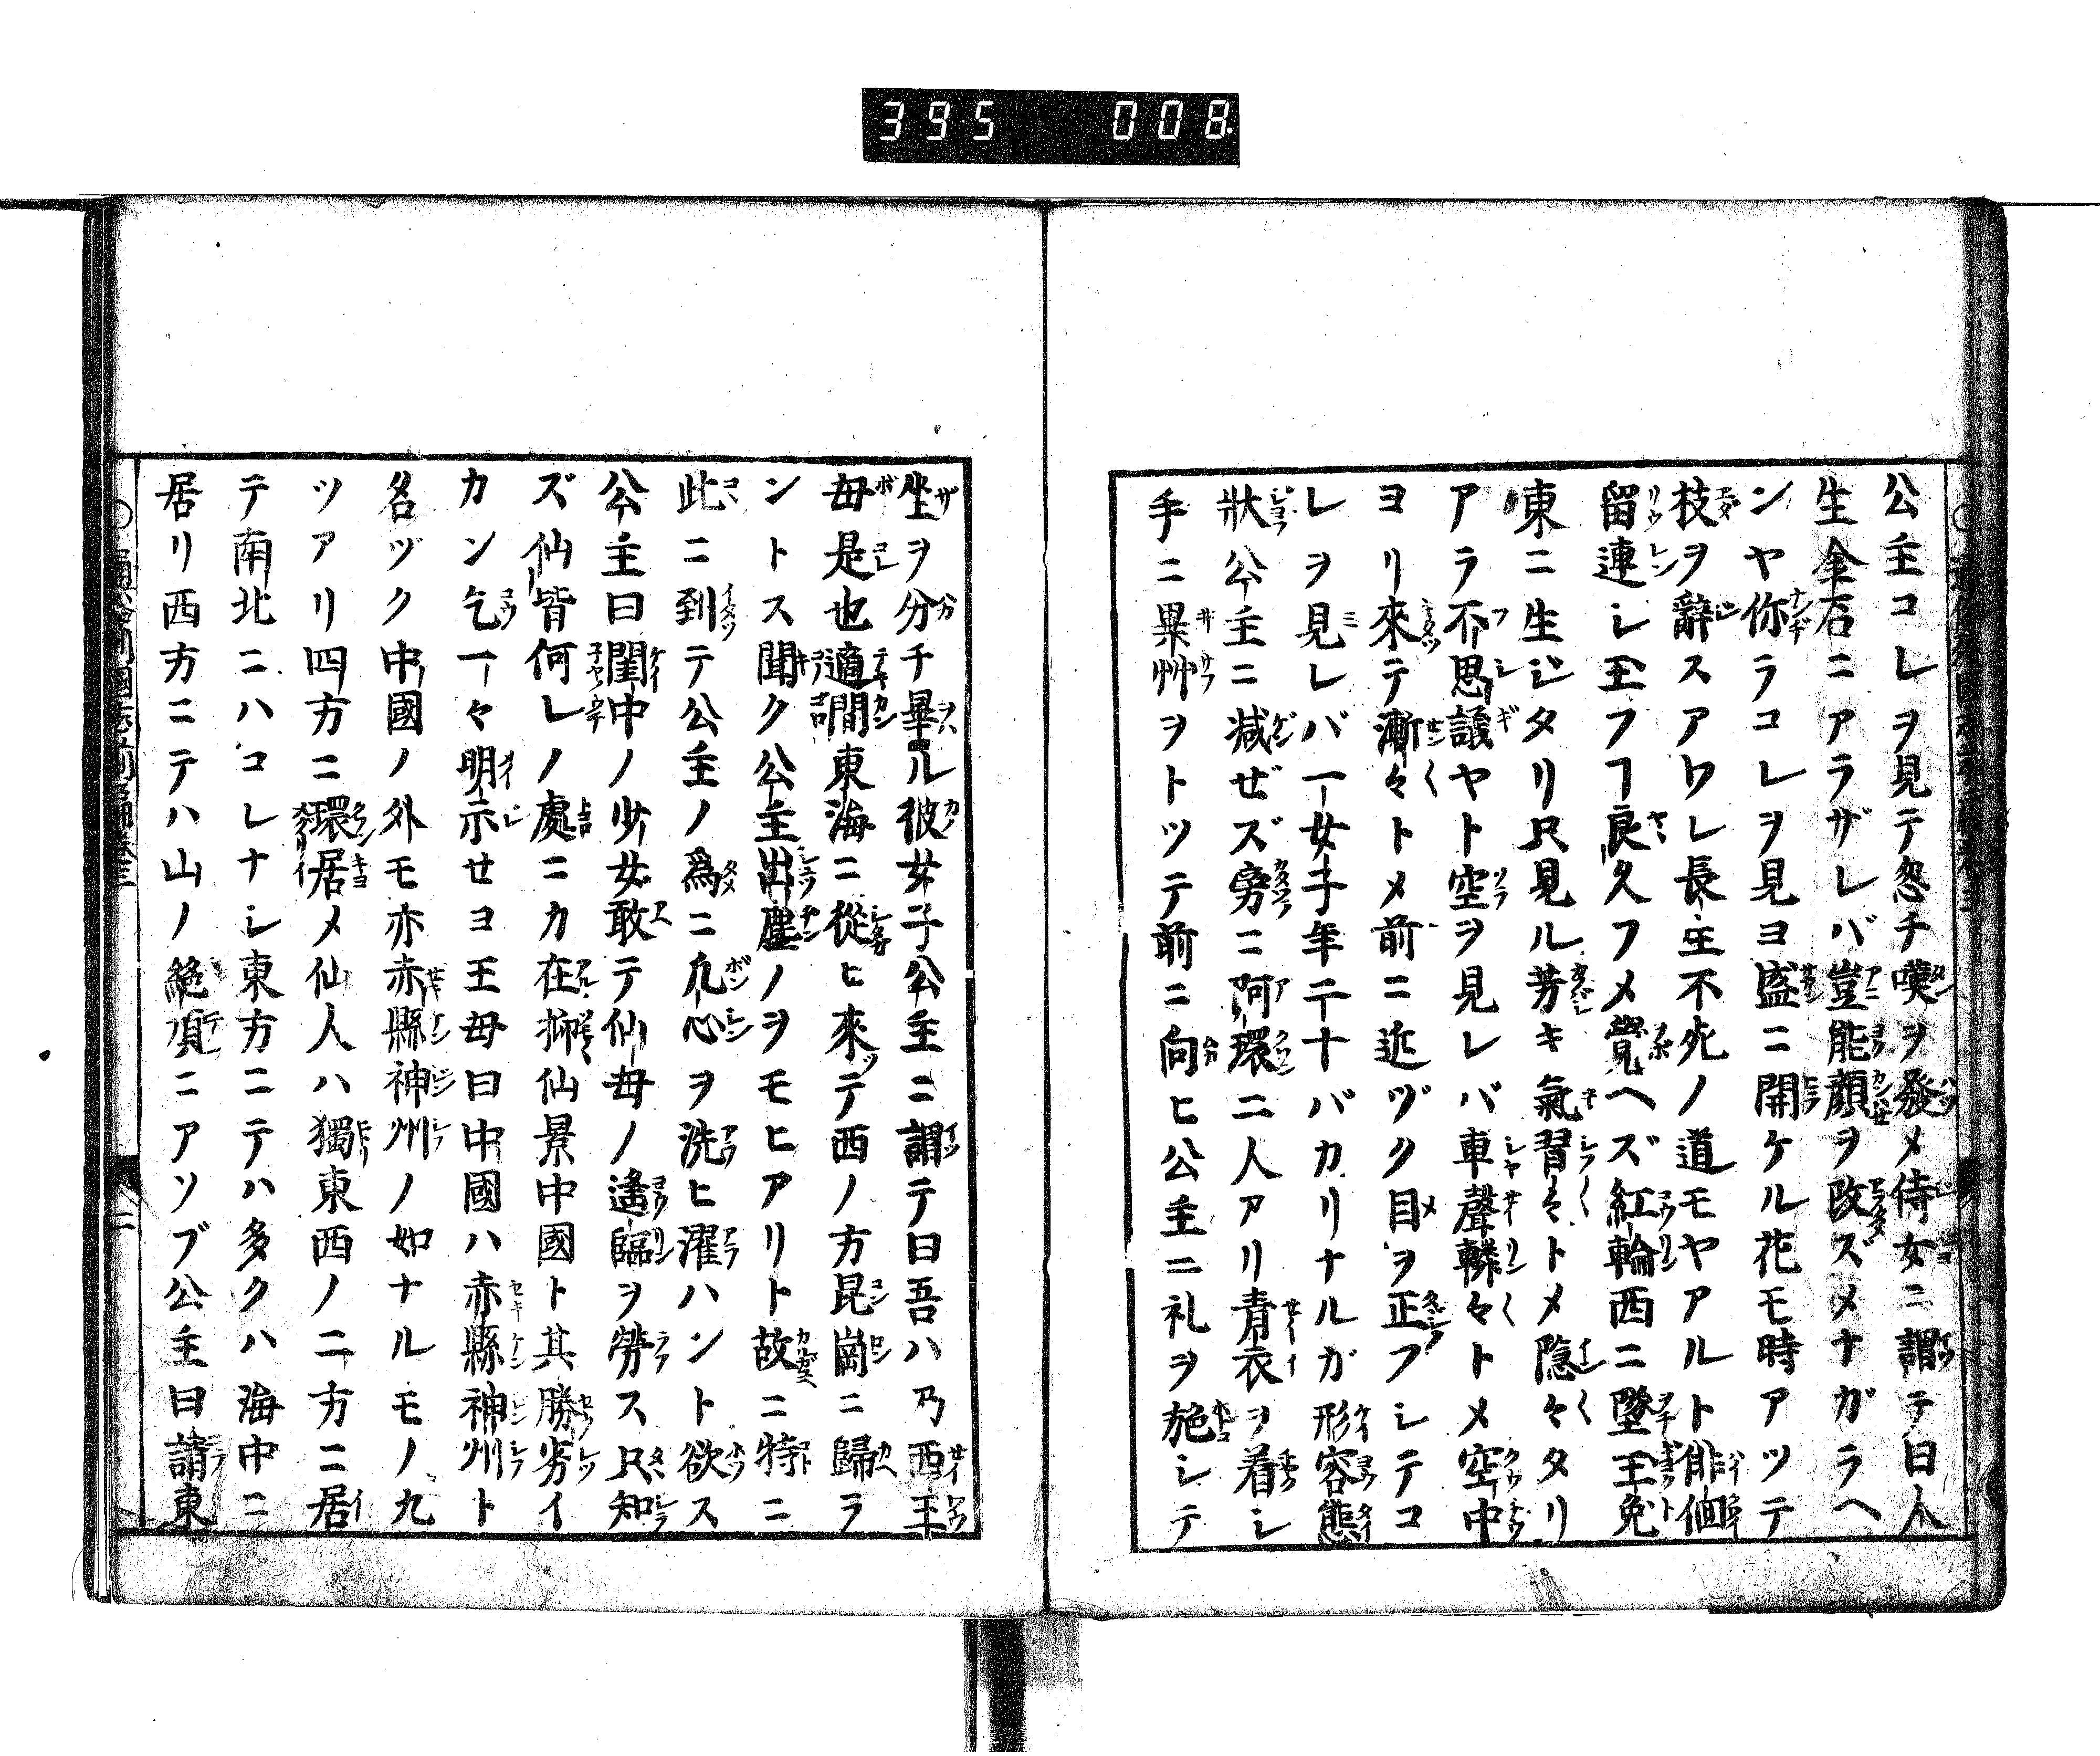 395 008
公主コレヲ見テ忽チ嘆ヲ發メ侍女ニ謂テ曰人
生金石ニアラザレバ豈能顔ヲ改ズメナガラヘ
ンヤ你ラコレヲ見ヨ盛ニ開ケル花モ時アツテ
枝ヲ辭スアワレ長生不死ノ道モヤアルト俳徊
留連シ玉フヿ良久フメ覺ヘズ紅輪西ニ墜玉兔
東ニ生ジタリ只見ル芳キ氣習々トメ隠々タリ
アラ不思議ヤト空ヲ見レバ車聲轔々トメ空中
ヨリ來テ漸々トメ前ニ近ヅク目ヲ正フシテコ
レヲ見レバ一女子年二十バカリナルガ形容態
狀公主ニ减ゼズ旁ニ阿環二人アリ青衣ヲ着シ
手ニ畢艸ヲトツテ前ニ向ヒ公主ニ礼ヲ施シテ
坐ヲ分チ畢ル彼女子公主ニ謂テ曰吾ハ乃西王
母是也適間東海ニ從ヒ來テ西ノ方昆崗ニ歸ラ
ントス聞ク公主出塵ノヲモヒアリト故ニ特ニ
此ニ到テ公主ノ爲ニ凢心ヲ洗ヒ濯ハント欲ス
公主曰閨中ノ少女敢テ仙母ノ遙臨ヲ勞ス只知
ズ仙皆何レノ處ニカ在抑仙景中國ト其勝劣イ
カン乞一々明示セヨ王母曰中國ハ赤縣神州ト
名ヅク中國ノ外モ亦赤縣神州ノ如ナルモノ九
ツアリ四方ニ環居メ仙人ハ獨東西ノ二方ニ居
テ南北ニハコレナシ東方ニテハ多クハ海中ニ
居リ西方ニテハ山ノ絶頂ニアソブ公主曰請東